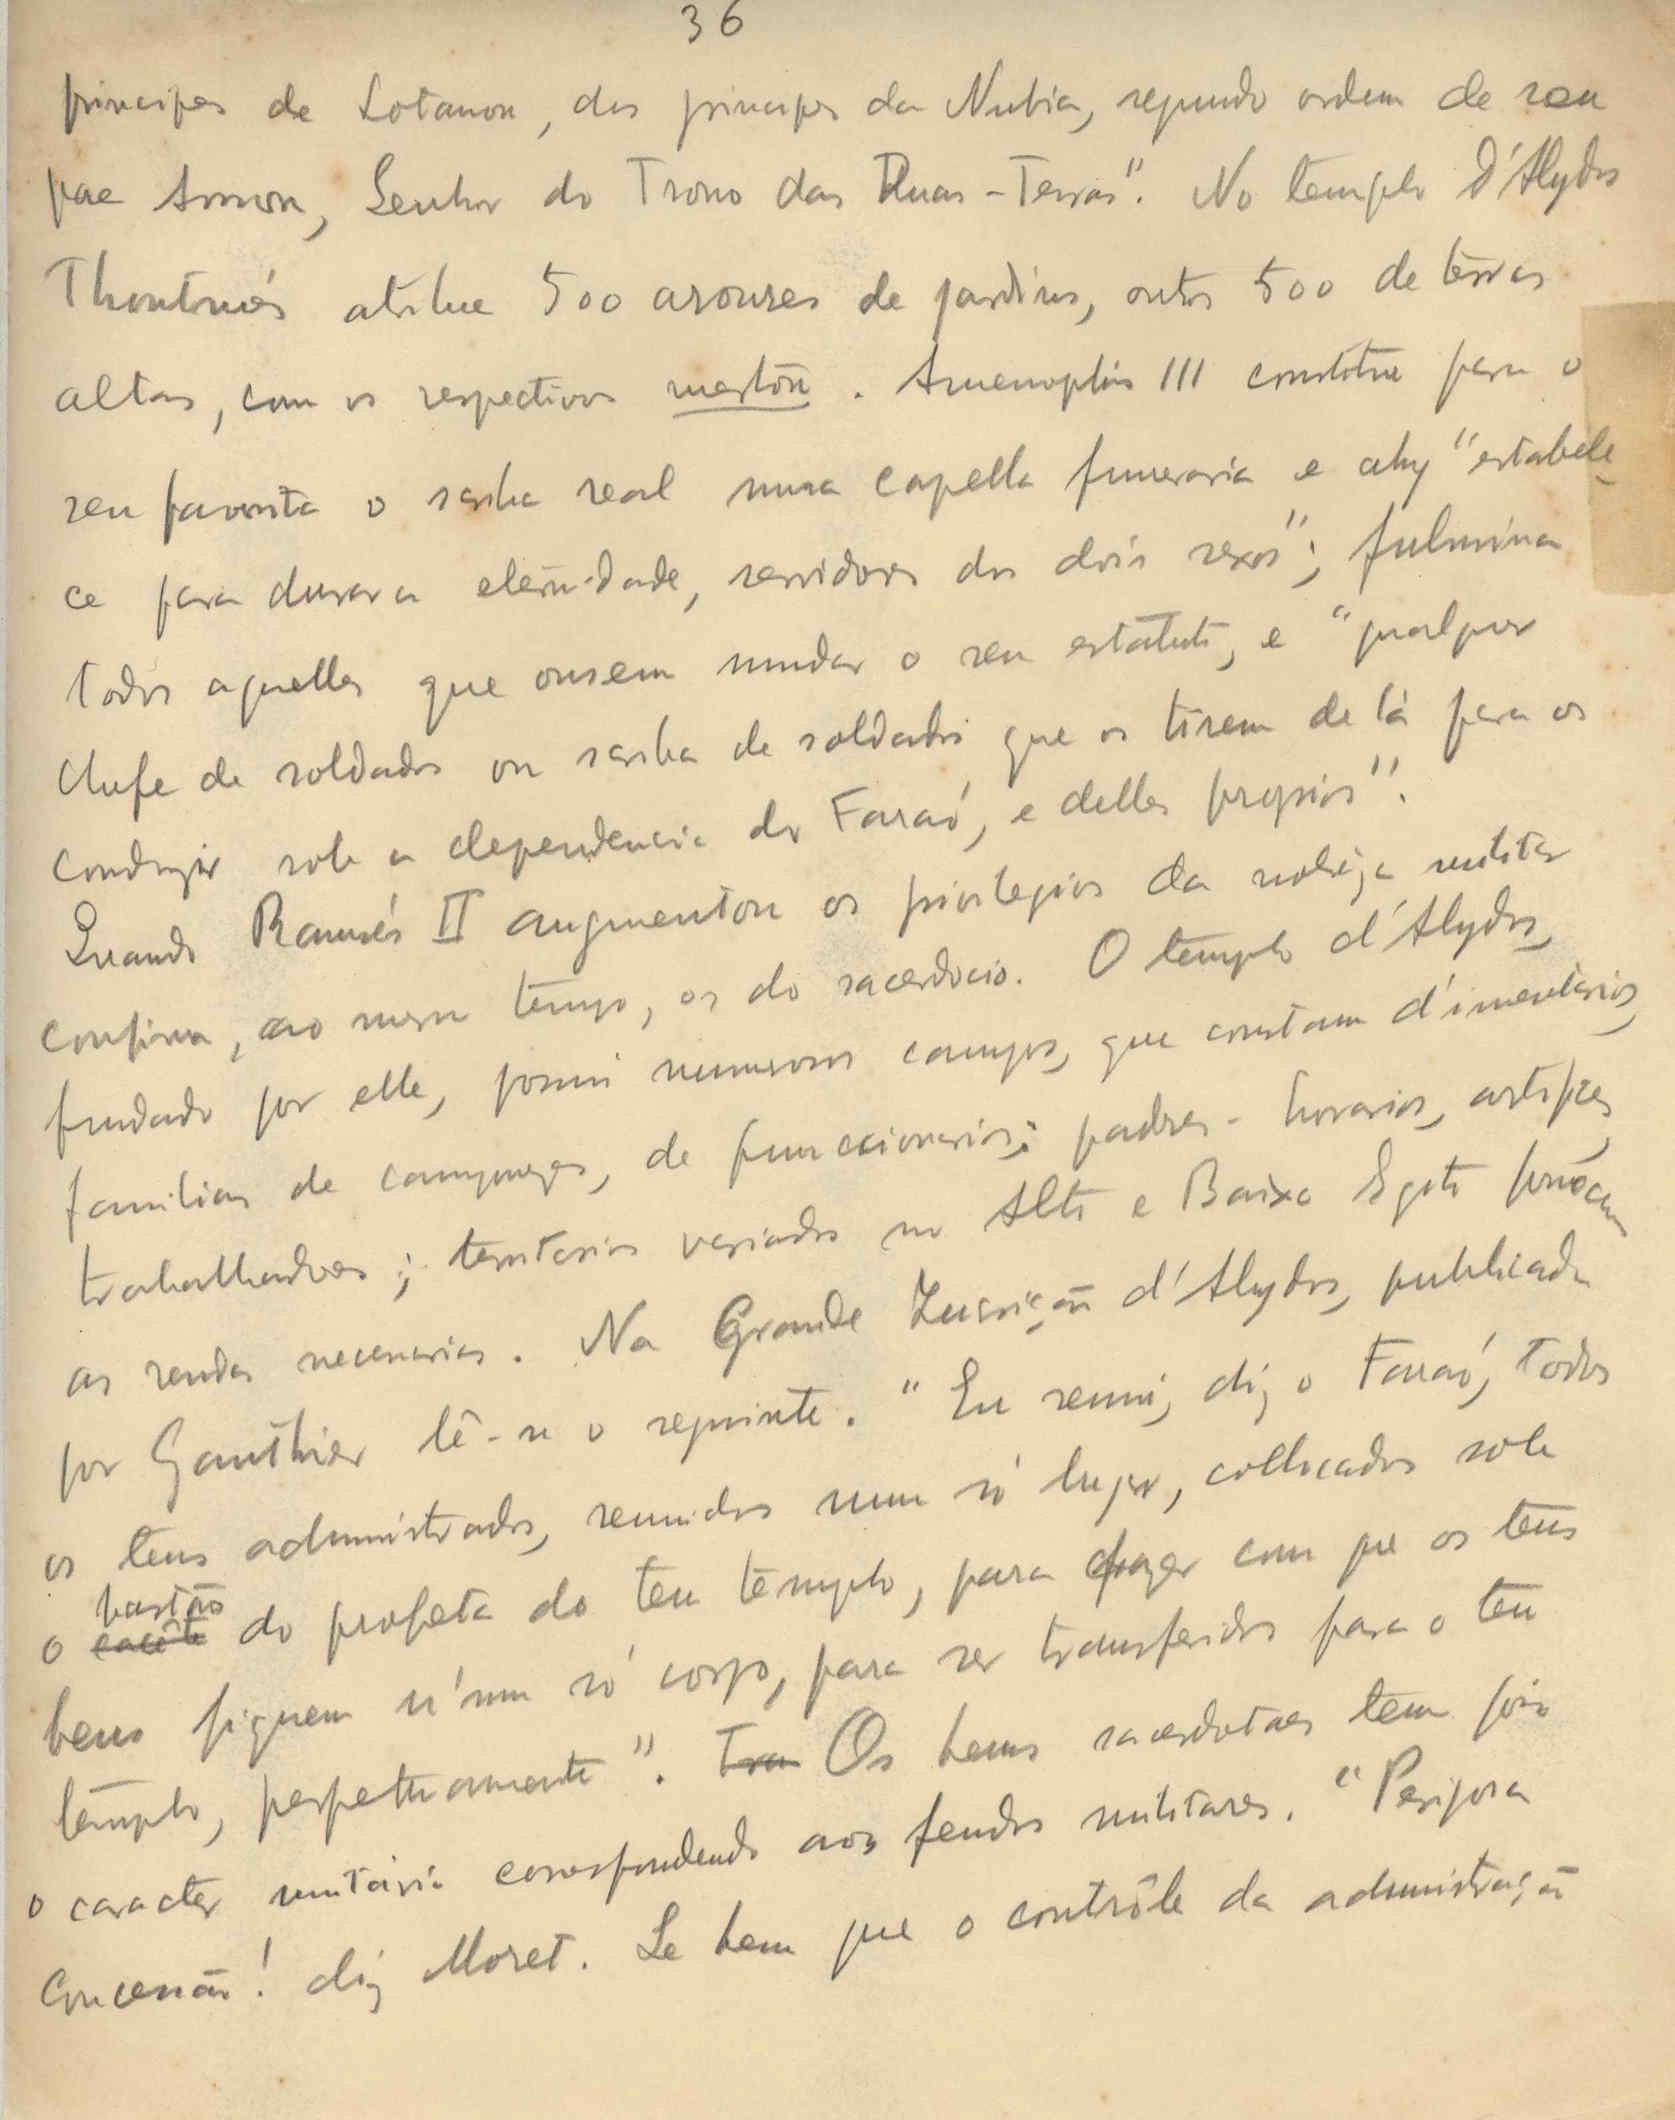 36
principes de Lotanou, dos principes da Nubia, segundo ordem de seu
pae Amon, Senhor do Trono das Duas-Terras". No templo d'Abydos
Thoutmés atribue 500 aroures de jardins, outros 500 de terras
altas, com os respectivos mertou. Amenophis III constitue para o
seu favorito o scriba real numa capella funeraria e ahy "estabele-
ce para durar a eternidade, servidores dos dois sexos"; fulmina
todos aquelles que ousem mudar o seu estatuto, e "qualquer
chefe de soldados ou scriba de soldados que os tirem de lá para os
conduzir sob a dependencia do Faraó, e delles proprios".
Quando Ramsés II augmentou os privilegios da nobreza militar
confirma, ao mesmo tempo, os do sacerdocio. O templo d'Abydos,
fundado por elle, possui numerosos campos, que constam d'inventarios,
familias de camponezes, de funccionarios; padres-horarios, artifices,
trabalhadores; territorios variados no Alto e Baixo Egito fornecem
as rendas necessarias. Na Grande Inscrição d'Abydos, publicada
por Gauthier lê-se o seguinte. "Eu reuni, diz o Faraó, todos
os teus administrados, reunidos num só lugar, collocados sob
o bastão do profeta do teu templo, para fazer com que os teus
bens fiquem n'um só corpo, para ser transferidos para o teu
templo, perpetuamente". Os bens sacerdotaes tem pois
o caracter unitário correspondendo aos feudos militares. "Perigosa
Concessão! diz Moret. Se bem que o contrôle da administração